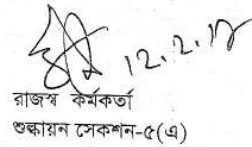 12.2.17
রাজস্ব কর্মকর্তা
শুল্কায়ন সেকশন-৫(এ)